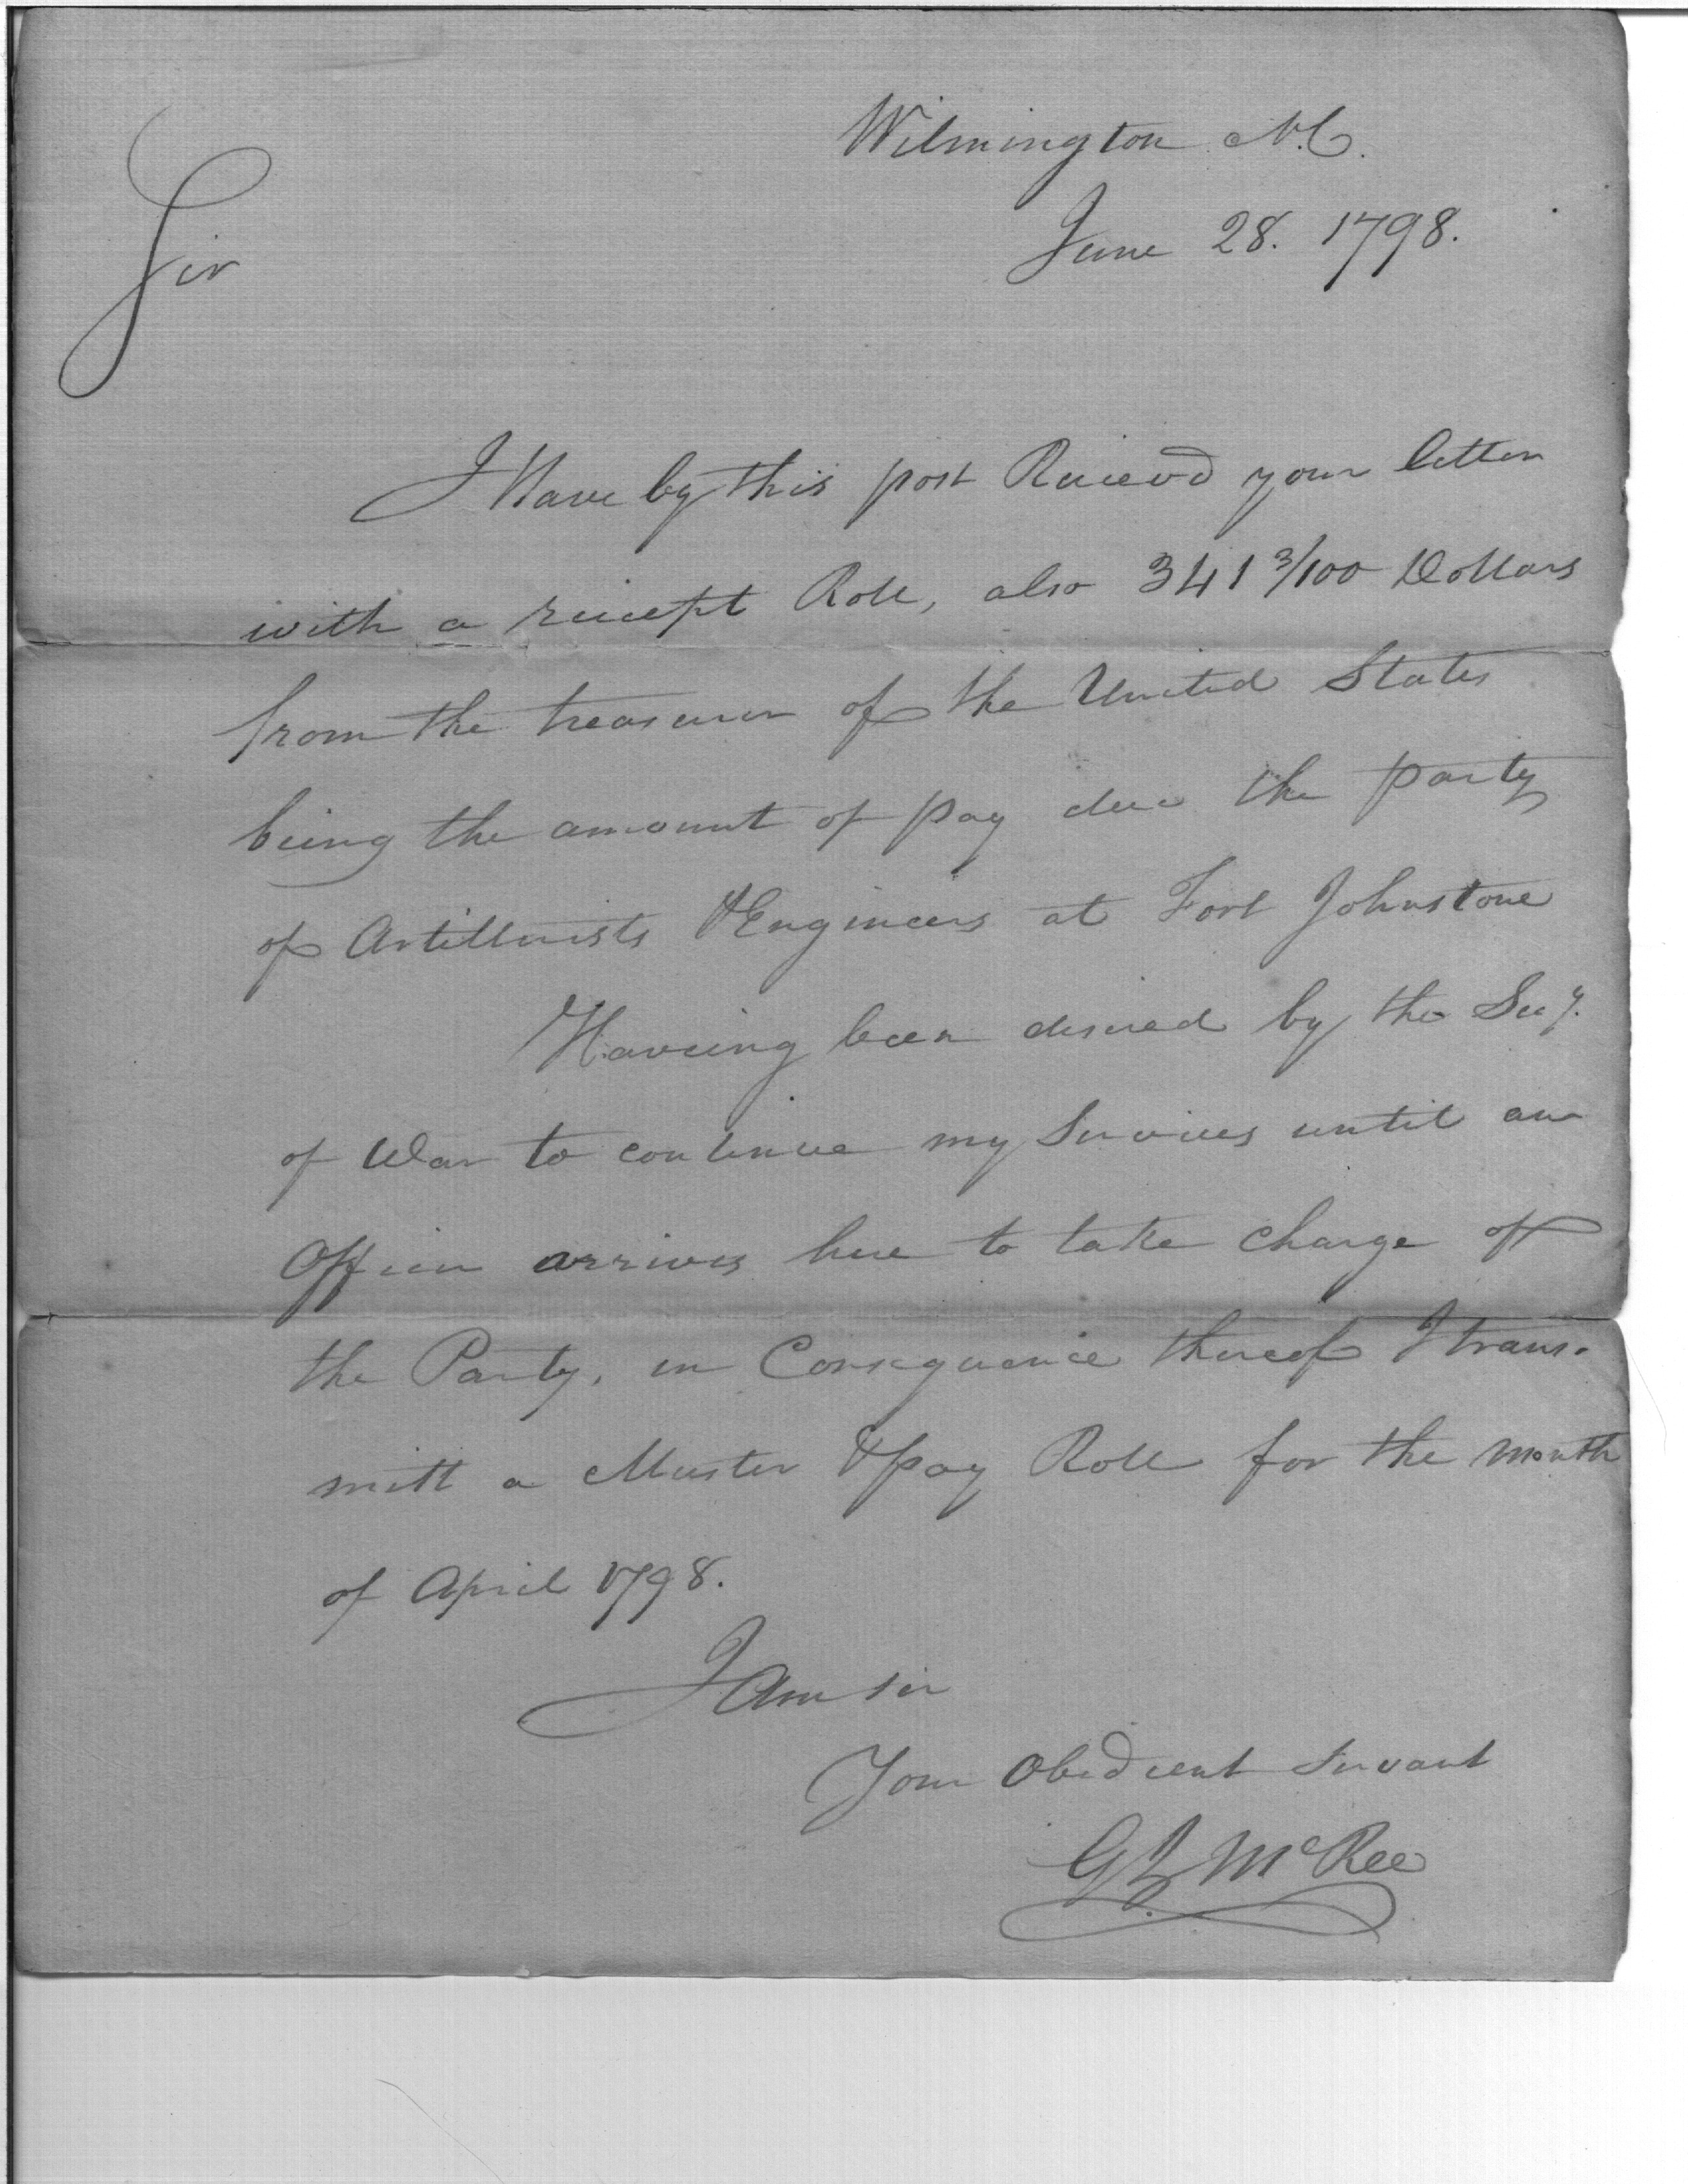 Wilmington N.C.
June 28. 1798.
Sir
I Have by this post Recievd your letter
with a reciept Roll, also 341 3/100 Dollars
from the treasurer of the United States
being the amount of pay due the party
of Artillerists & Engineers at Fort Johnstone
Haveing been desired by the Secy.
of War to continue my Services until an
Officer arrives here to take Charge of
the Party, in Consequence thereof I trans-
mitt a Muster & pay Roll for the month
of April 1798.
I Am sir
Your Obedient Servant
G J McRee